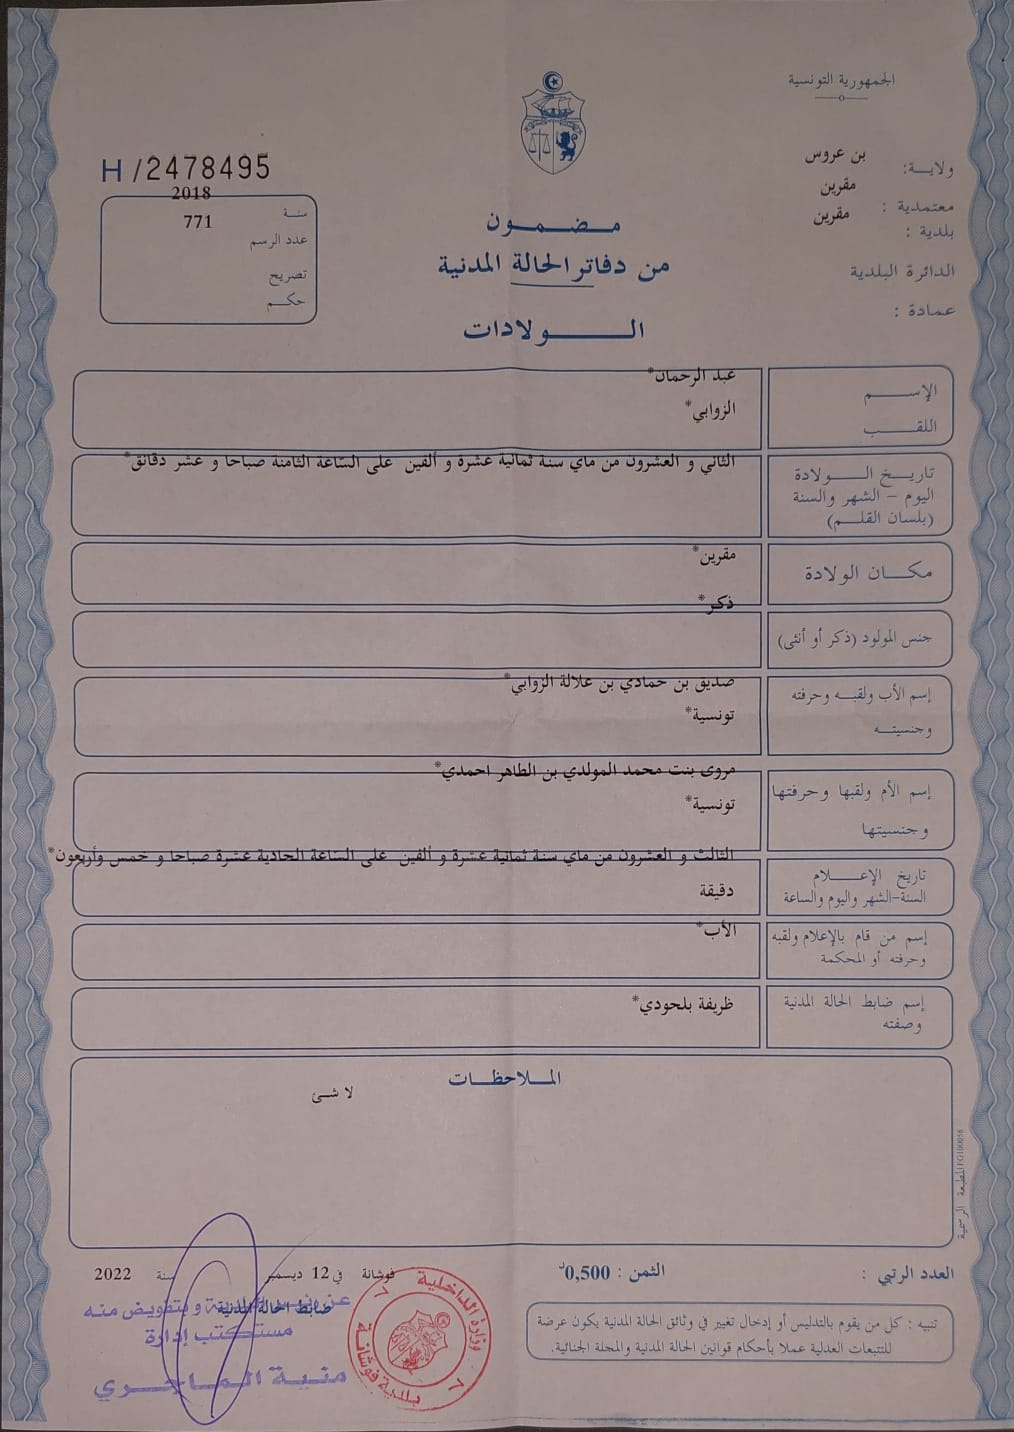 الجمهورية التونسية
ولاية: بن عروس
معتمدية : مقرين
بلدية : مقرين
الدائرة البلدية
عمادة :
H/2478495
سنة 2018
عدد الرسم 771
تصريح
حكم
مضمون
من دفاتر الحالة المدنية
الولادات
الإسم عبد الرحمان*
اللقب الزوابي*
تاريخ الولادة
اليوم - الشهر والسنة
(بلسان القلم)
الثاني و العشرون من ماي سنة ثمانية عشرة و ألفين على الساعة الثامنة صباحا و عشر دقائق*
مكان الولادة مقرين*
ذكر*
جنس المولود (ذكر أو أنثى)
إسم الأب ولقبه وحرفته صديق بن حمادي بن علالة الزوابي*
وجنسيته تونسية*
إسم الأم ولقبها وحرفتها مروى بنت محمد المولدي بن الطاهر احمدي*
وجنسيتها تونسية*
تاريخ الإعلام الثالث و العشرون من ماي سنة ثمانية عشرة و ألفين على الساعة الحادية عشرة صباحا و خمس وأربعون*
السنة-الشهر واليوم والساعة دقيقة
إسم من قام بالإعلام ولقبه الأب*
وحرفته أو المحكمة
إسم ضابط الحالة المدنية ظريفة بلحودي*
وصفته
الملاحظات
لا شئ
المطبعة الرسمية FG100058
العدد الرتبي :
الثمن : 0,500د
فوشانة في 12 ديسمبر سنة 2022
ضابط الحالة المدنية
عن رئيس البلدية و بتفويض منه
مستكتب إدارة
منية الماجري
وزارة الداخلية
7 7
بلدية فوشانة
تنبيه : كل من يقوم بالتدليس أو إدخال تغيير في وثائق الحالة المدنية يكون عرضة
للتتبعات العدلية عملا بأحكام قوانين الحالة المدنية والمجلة الجنائية.